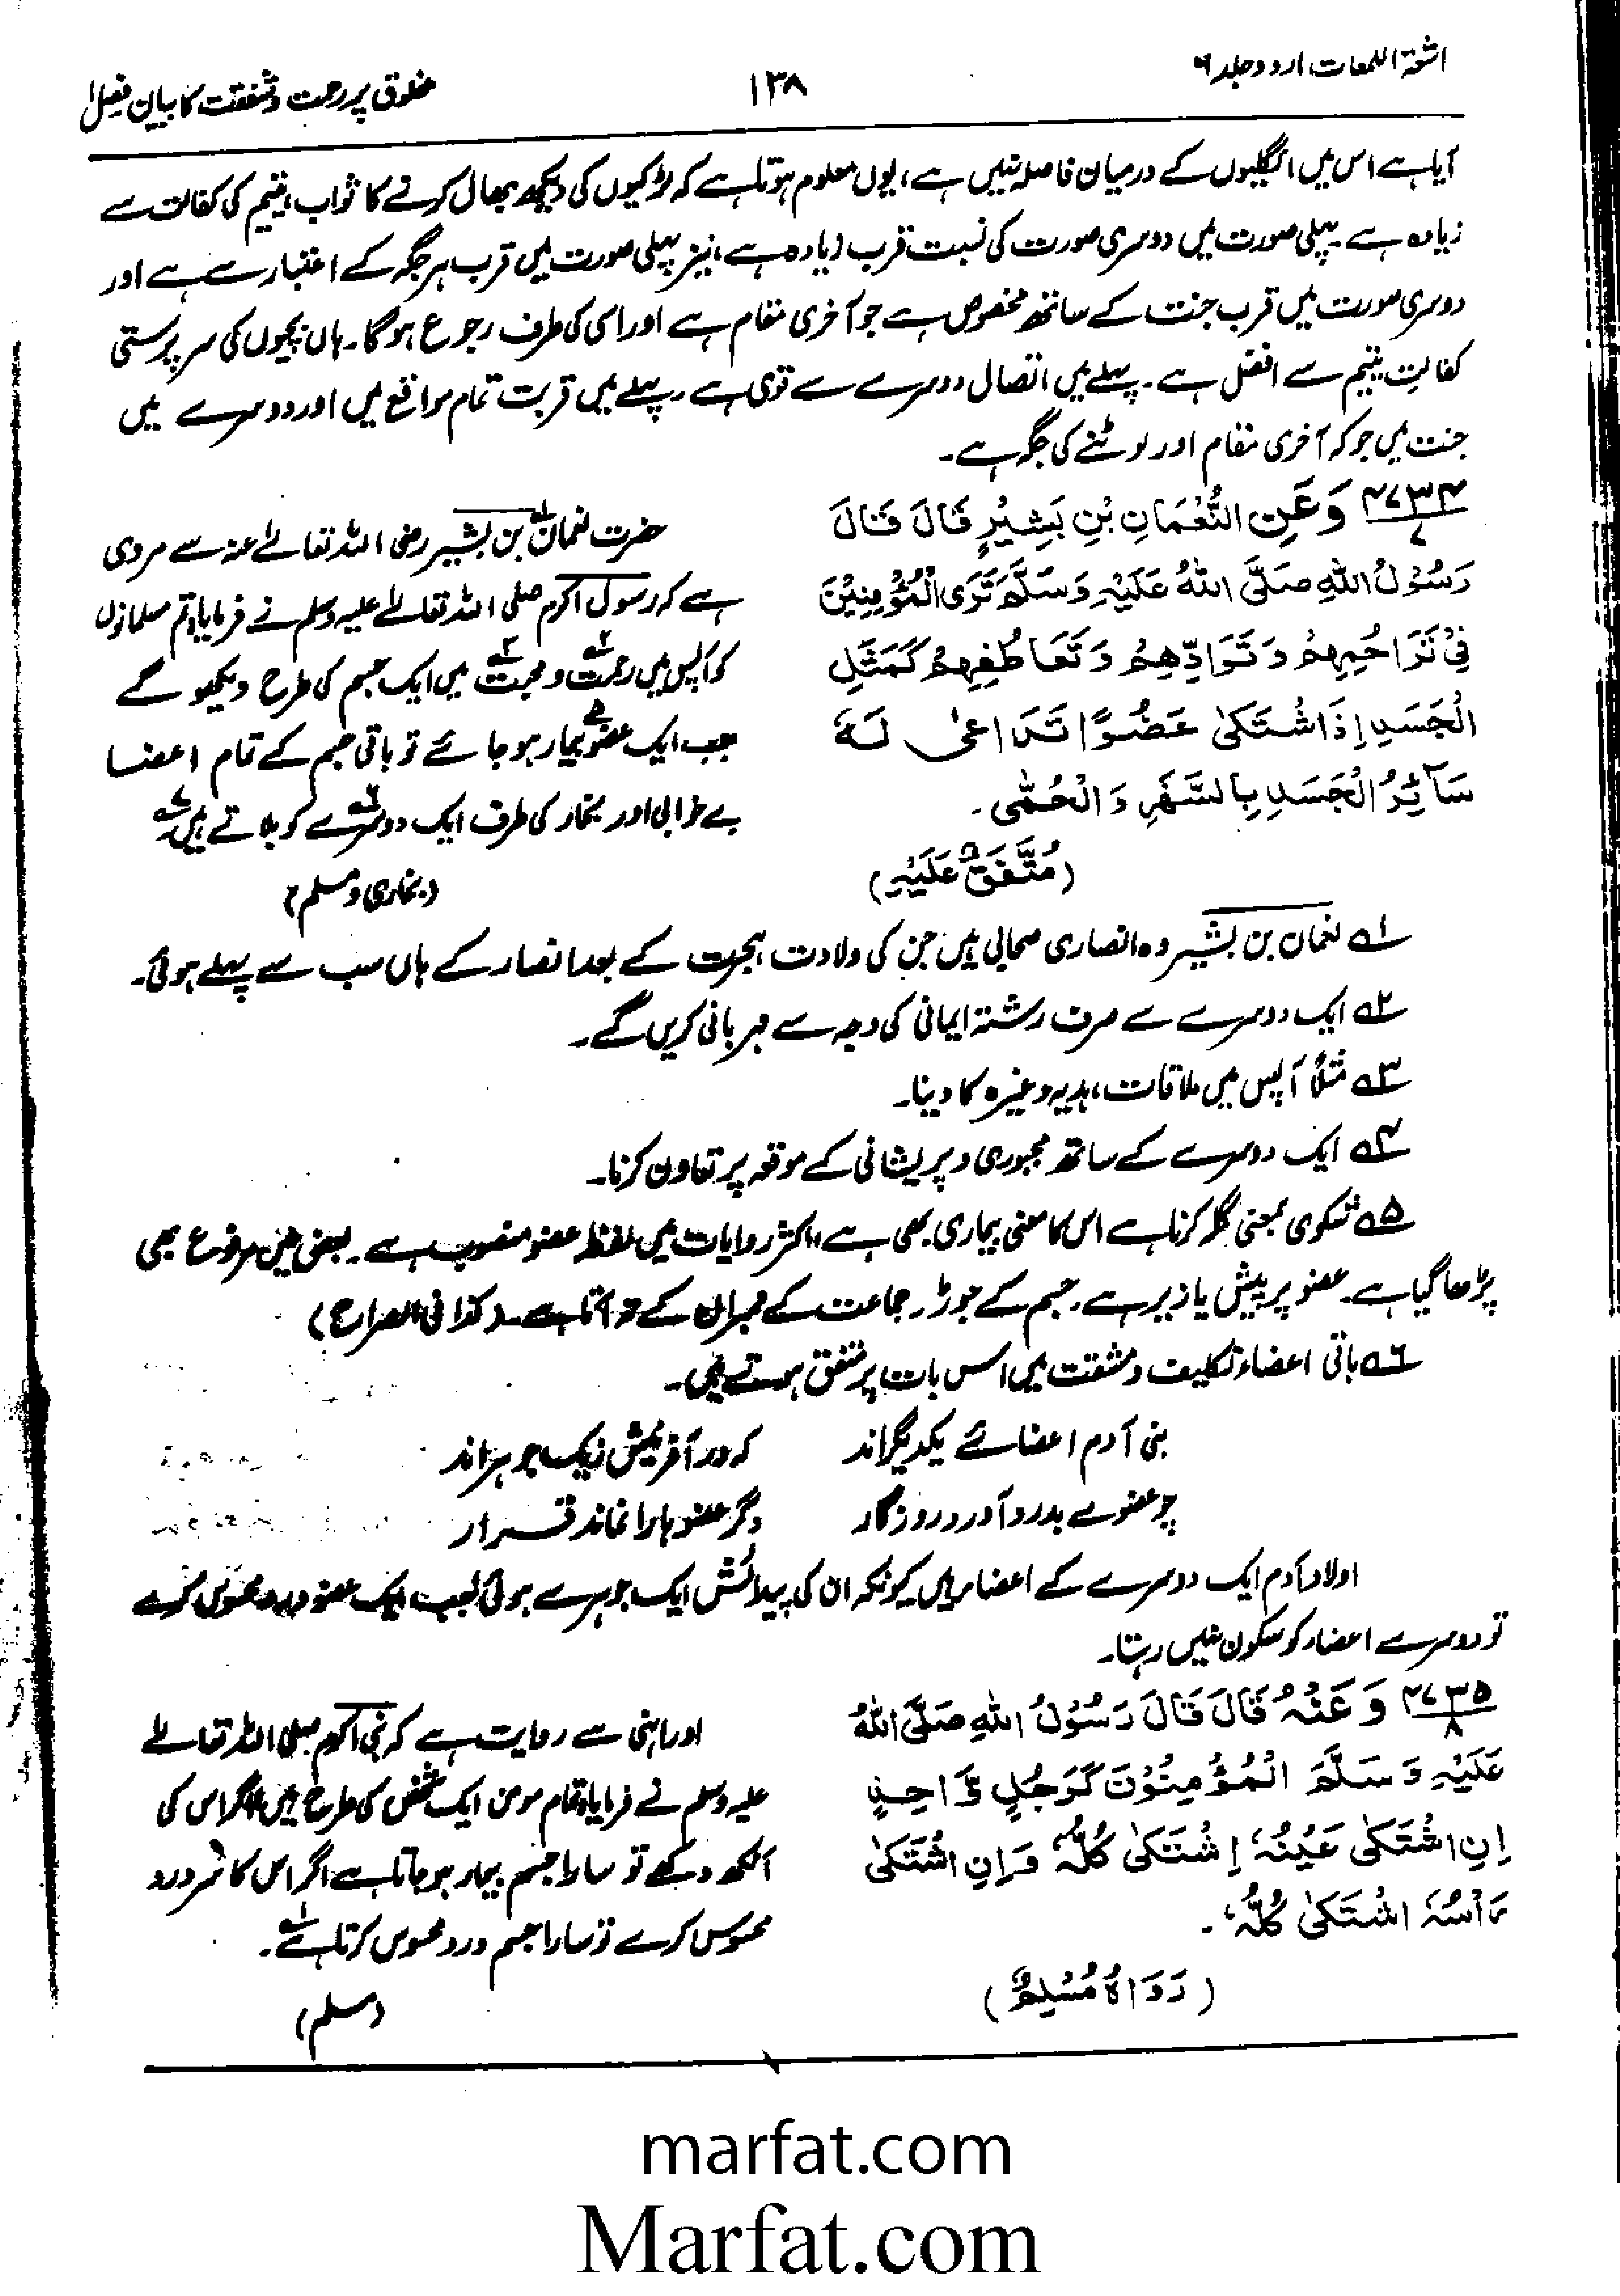 اشعۃ اللمعات اردو جلد ۶
۱۳۸
مخلوق پر رحمت و شفقت کا بیان فصل ۱
آیا ہے اس میں انگلیوں کے درمیان فاصلہ نہیں ہے، یوں معلوم ہوتا ہے کہ لڑکیوں کی دیکھ بھال کرنے کا ثواب، یتیم کی کفالت سے
زیادہ ہے۔ پہلی صورت میں دوسری صورت کی نسبت قرب زیادہ ہے، نیز پہلی صورت میں قرب ہر جگہ کے اعتبار سے ہے اور
دوسری صورت میں قرب جنت کے ساتھ مخصوص ہے جو آخری مقام ہے اور اسی کی طرف رجوع ہوگا۔ ہاں بچیوں کی سرپرستی
کفالتِ یتیم سے افضل ہے۔ پہلے میں اتصال دوسرے سے قوی ہے۔ پہلے میں قربت تمام مواقع میں اور دوسرے میں
جنت میں جو کہ آخری مقام اور لوٹنے کی جگہ ہے۔
۴۷۳۴
۷
وَعَنِ النُّعْمَانِ بْنِ بَشِيْرٍ قَالَ قَالَ
رَسُوْلُ اللهِ صَلَّى اللهُ عَلَيْهِ وَسَلَّمَ تَرَى الْمُؤْمِنِيْنَ
فِيْ تَرَاحُمِهِمْ وَتَوَادِّهِمْ وَتَعَاطُفِهِمْ كَمَثَلِ
الْجَسَدِ اِذَا اشْتَكٰى عُضْوًا تَدَاعٰى لَهٗ
سَآئِرُ الْجَسَدِ بِالسَّهَرِ وَالْحُمّٰى۔
(مُتَّفَقٌ عَلَيْهِ)
حضرت نعمان۱؎ بن بشیر رضی اللہ تعالےٰ عنہ سے مروی
ہے کہ رسول اکرم صلی اللہ تعالےٰ علیہ وسلم نے فرمایا، تم مسلمانوں
کو آپس میں رحمت۲؎ و محبت۳؎ میں ایک جسم کی طرح دیکھو گے
جب ایک عضو۵؎ بیمار ہو جائے تو باقی جسم کے تمام اعضا
بے خوابی اور بخار کی طرف ایک دوسرے۶؎ کو بلاتے ہیں۷؎۔
(بخاری و مسلم)
۱؎ نعمان بن بشیر وہ انصاری صحابی ہیں جن کی ولادت ہجرت کے بعد انصار کے ہاں سب سے پہلے ہوئی۔
۲؎ ایک دوسرے سے صرف رشتۂ ایمانی کی وجہ سے مہربانی کریں گے۔
۳؎ مثلاً آپس میں ملاقات، ہدیہ وغیرہ کا دینا۔
۴؎ ایک دوسرے کے ساتھ مجبوری و پریشانی کے موقعہ پر تعاون کرنا۔
۵؎ شکوی بمعنی گلہ کرنا ہے اس کا معنی بیماری بھی ہے، اکثر روایات میں لفظ عضو منصوب ہے۔ بعض میں مرفوع بھی
پڑھا گیا ہے۔ عضو پر پیش یا زبر ہے۔ جسم کے جوڑ۔ جماعت کے ممبران کے آتا ہے۔ (کذا فی الصراح)
۶؎ باقی اعضاء تکلیف و مشقت میں اس بات پر متفق ہوتے ہیں۔
بنی آدم اعضائے یکدیگراند
کہ در آفرینش زیک جوہراند
چو عضوے بدرد آورد روزگار
دگر عضوہا را نماند قرار
اولاد آدم ایک دوسرے کے اعضاء ہیں کیونکہ ان کی پیدائش ایک جوہر سے ہوئی جب ایک عضو درد محسوس کرے
تو دوسرے اعضاء کو سکون نہیں رہتا۔
۴۷۳۵
۸
وَعَنْهُ قَالَ قَالَ رَسُوْلُ اللهِ صَلَّى اللهُ
عَلَيْهِ وَسَلَّمَ الْمُؤْمِنُوْنَ كَرَجُلٍ وَّاحِدٍ
اِنِ اشْتَكٰى عَيْنُهٗ اِشْتَكٰى كُلُّهٗ وَاِنِ اشْتَكٰى
رَاْسُهٗ اشْتَكٰى كُلُّهٗ۔
(رَوَاهُ مُسْلِمٌ)
اور انہی سے روایت ہے کہ نبی اکرم صلی اللہ تعالےٰ
علیہ وسلم نے فرمایا، تمام مومن ایک شخص کی طرح ہیں اگر اس کی
آنکھ دکھے تو سارا جسم بیمار ہو جاتا ہے اگر اس کا سر درد
محسوس کرے تو سارا جسم درد محسوس کرتا ہے۱؎۔
(مسلم)
marfat.com
Marfat.com